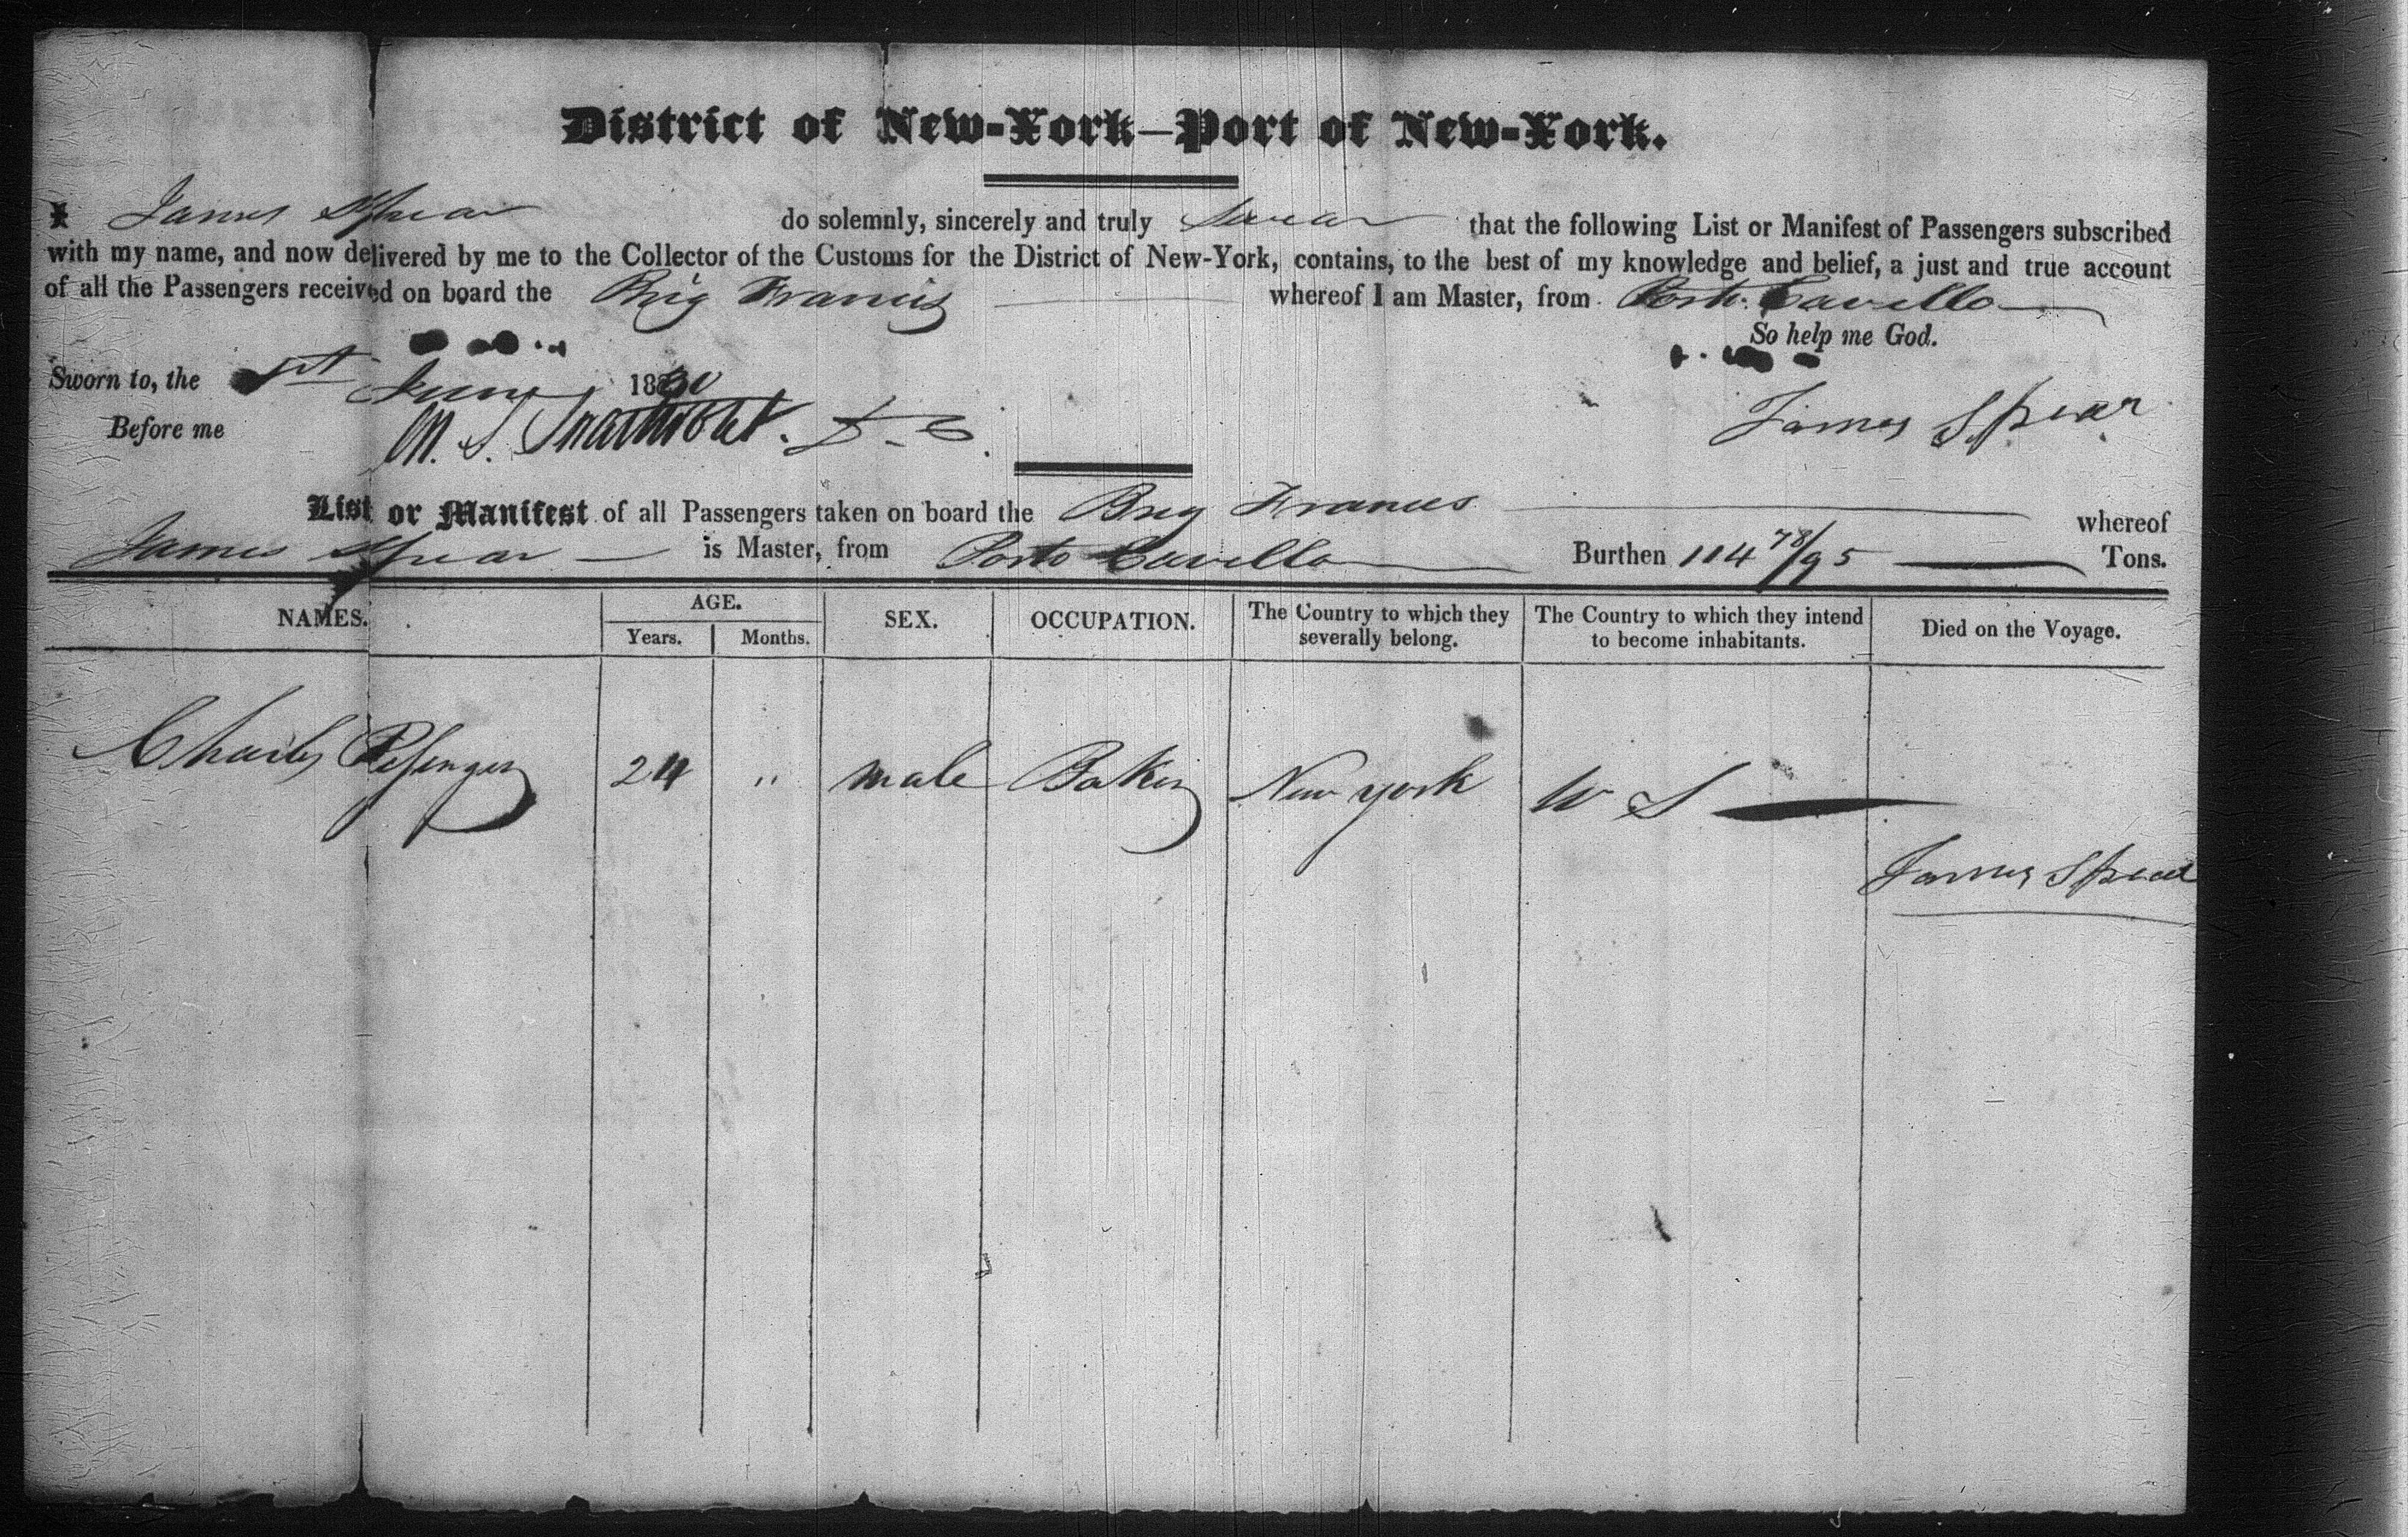 District of New-York—Port of New-York.
I James Spear do solemnly, sincerely and truly Swear that the following List or Manifest of Passengers subscribed
with my name, and now delivered by me to the Collector of the Customs for the District of New-York, contains, to the best of my knowledge and belief, a just and true account
of all the Passengers received on board the Brig Francis whereof I am Master, from Porto Cavello
So help me God.
Sworn to, the 1st June 1830
Before me M. S. Swartwout. D-C. James Spear
List or Manifest of all Passengers taken on board the Brig Francis whereof
James Spear is Master, from Porto Cavello Burthen 114 78/95 Tons.
NAMES. AGE. Years. Months. SEX. OCCUPATION. The Country to which they severally belong. The Country to which they intend to become inhabitants. Died on the Voyage.
Charles 24 " male Baker New york S
James Spear